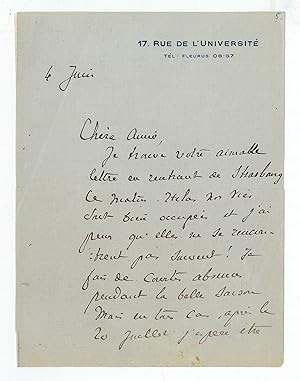 5.
17, RUE DE L'UNIVERSITÉ
TÉL : FLEURUS 08-57
4 Juin
Chère Amie
Je trouve votre aimable
lettre en rentrant de Strasbourg
ce matin. Helas nos vies
sont bien occupées et j'ai
peur qu'elles ne se rencon-
trent pas souvent ! Je
fais de courtes absences
pendant la belle saison
Mais en tous cas, après le
20 Juillet j'espère être